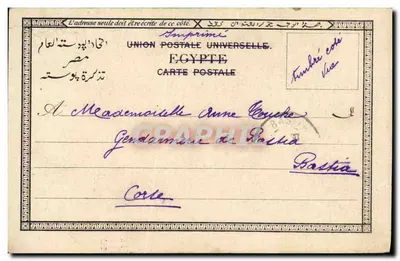 L'adresse seule doit être écrite de ce côté.
Imprimé
UNION POSTALE UNIVERSELLE.
EGYPTE
CARTE POSTALE
اتحاد البوستة العام
مصر
تذكرة بوسته
timbre cote
vue
A Mademoiselle Anne Touche
Gendarmerie de Bastia
Bastia
Corse